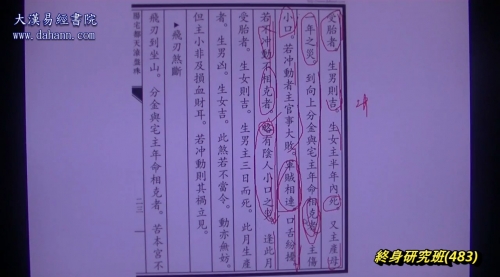 大漢易經書院
www.dahann.com
受胎者。生男則吉。生女主半年內死。又主產母
一年之災。到向上分金與宅主年命相克者。主傷
小口。若冲動者主官事大敗。軍賊相連。口舌紛擾。
若不冲動不相克者。略有陰人小口之
受胎者。生女則吉。生男主三日而死。此月生產
者。生男凶。生女吉。此然若不當令。動亦無妨。
但主小非及損血財耳。若冲動則其禍立見。
飛刃煞斷
飛刃到坐山。分金與宅主年命相克者。若本宮不
二三
終身研究班(483)